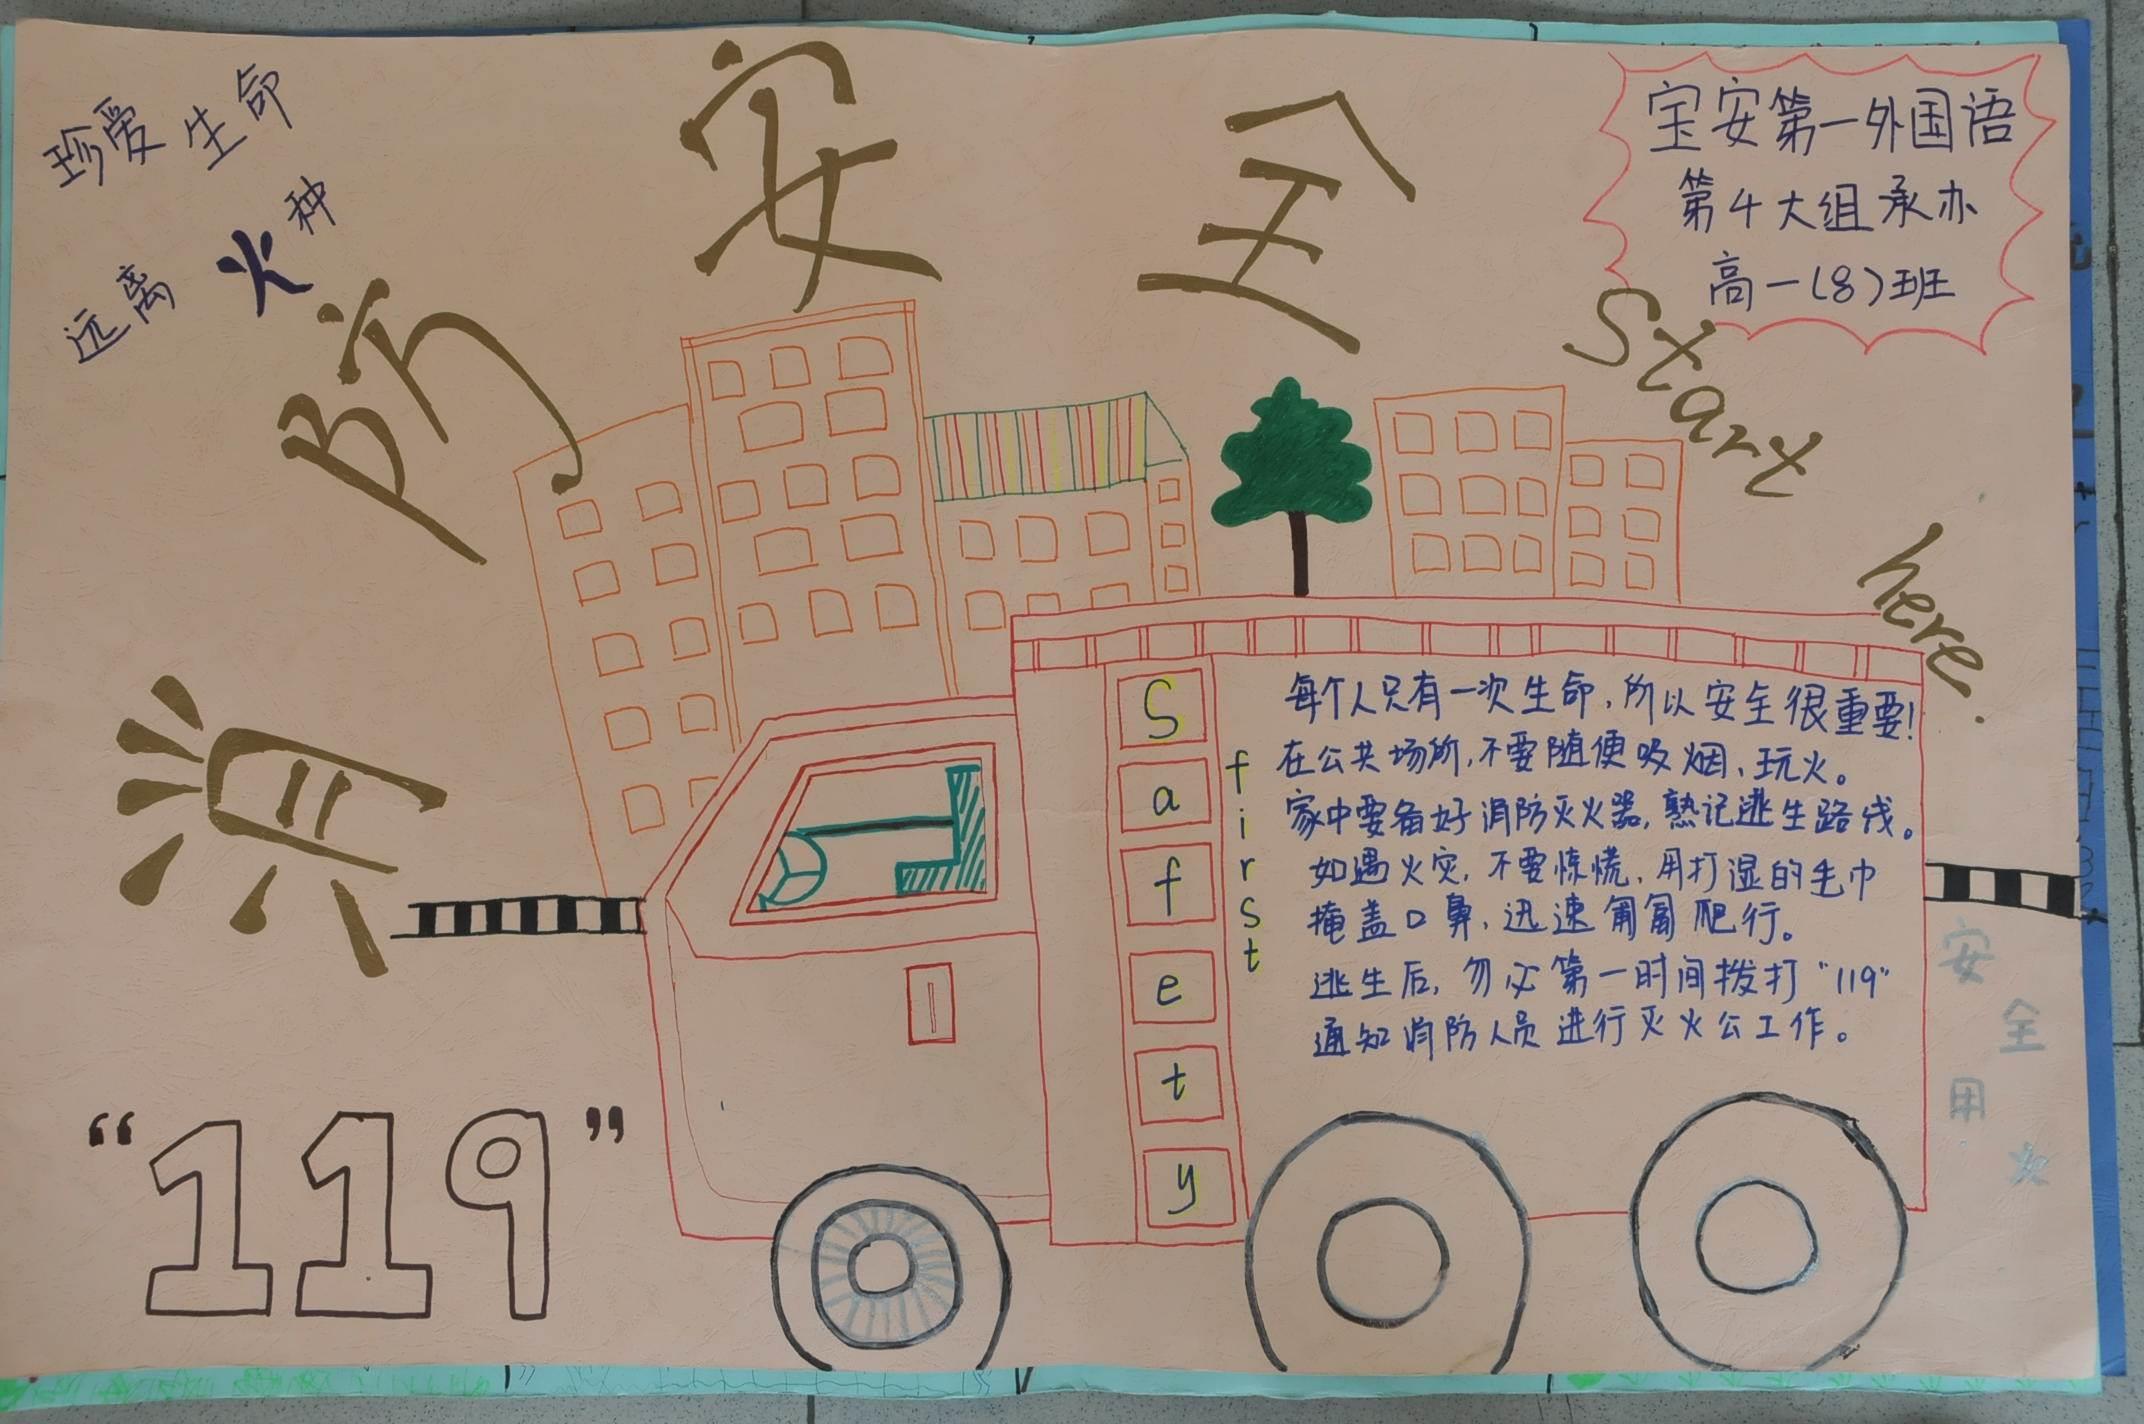 珍爱生命
远离火种
消防安全
Start here.
宝安第一外国语
第4大组承办
高一(8)班
Safety
first
每个人只有一次生命,所以安全很重要!
在公共场所,不要随便吸烟、玩火。
家中要备好消防灭火器,熟记逃生路线。
如遇火灾,不要惊慌,用打湿的毛巾
掩盖口鼻,迅速匍匐爬行。
逃生后,勿必第一时间拨打"119"
通知消防人员进行灭火公工作。
安全用火
"119"